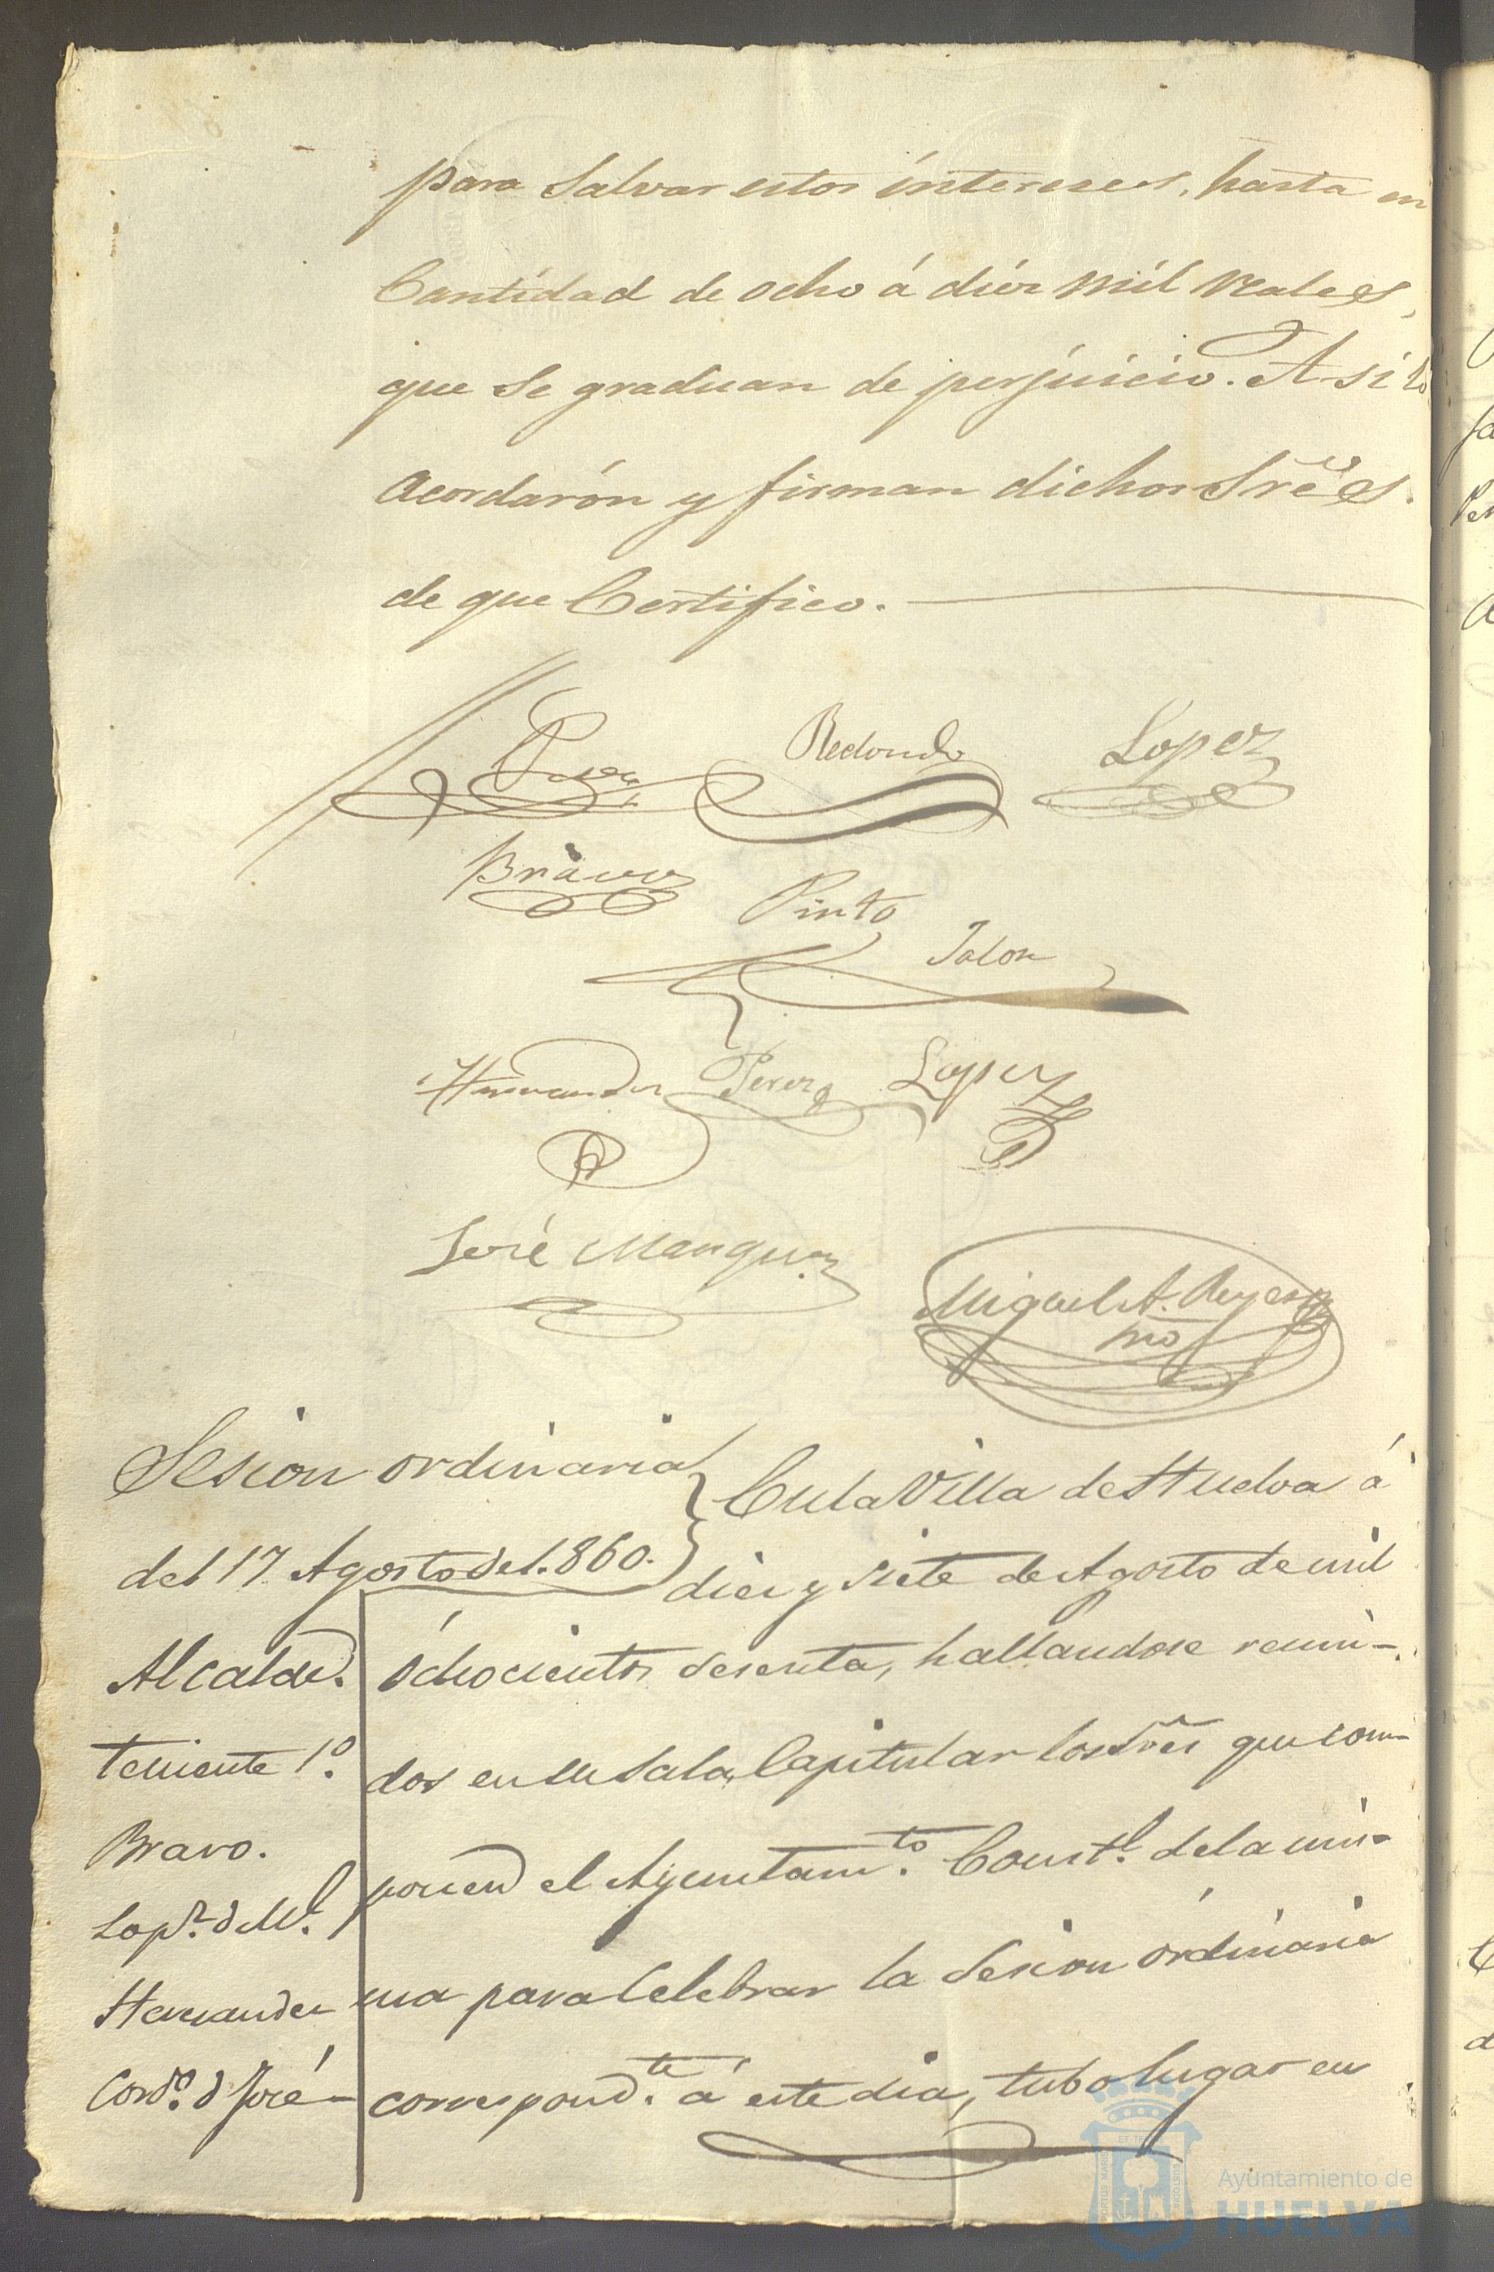 para Salvar estos intereses, hasta en
Cantidad de ocho á diez mil reales,
que se graduan de perjuicio. Asi lo
acordarón y firman dichos Sres.
de que Certifico.
Redondo Lopez
Bravo
Pinto
Jalon
Hernandez Perez Lopez
José Marquez
Miguel A. Reyes
Sesion ordinaria
del 17 Agosto del.860.
En la Villa de Huelva á
diez y siete de Agosto de mil
Alcalde.
ochocientos sesenta, hallandose reuni-
Teniente 1º.
dos en su Sala Capitular los Sres que com-
Bravo.
ponen el Ayuntamto. Constl. de la mis-
Lopz. d Ml.
Hernandez
ma para Celebrar la Sesion órdinaria
Cordo. d José
correspondte. á este dia, tubo lugar en
Ayuntamiento de
HUELVA